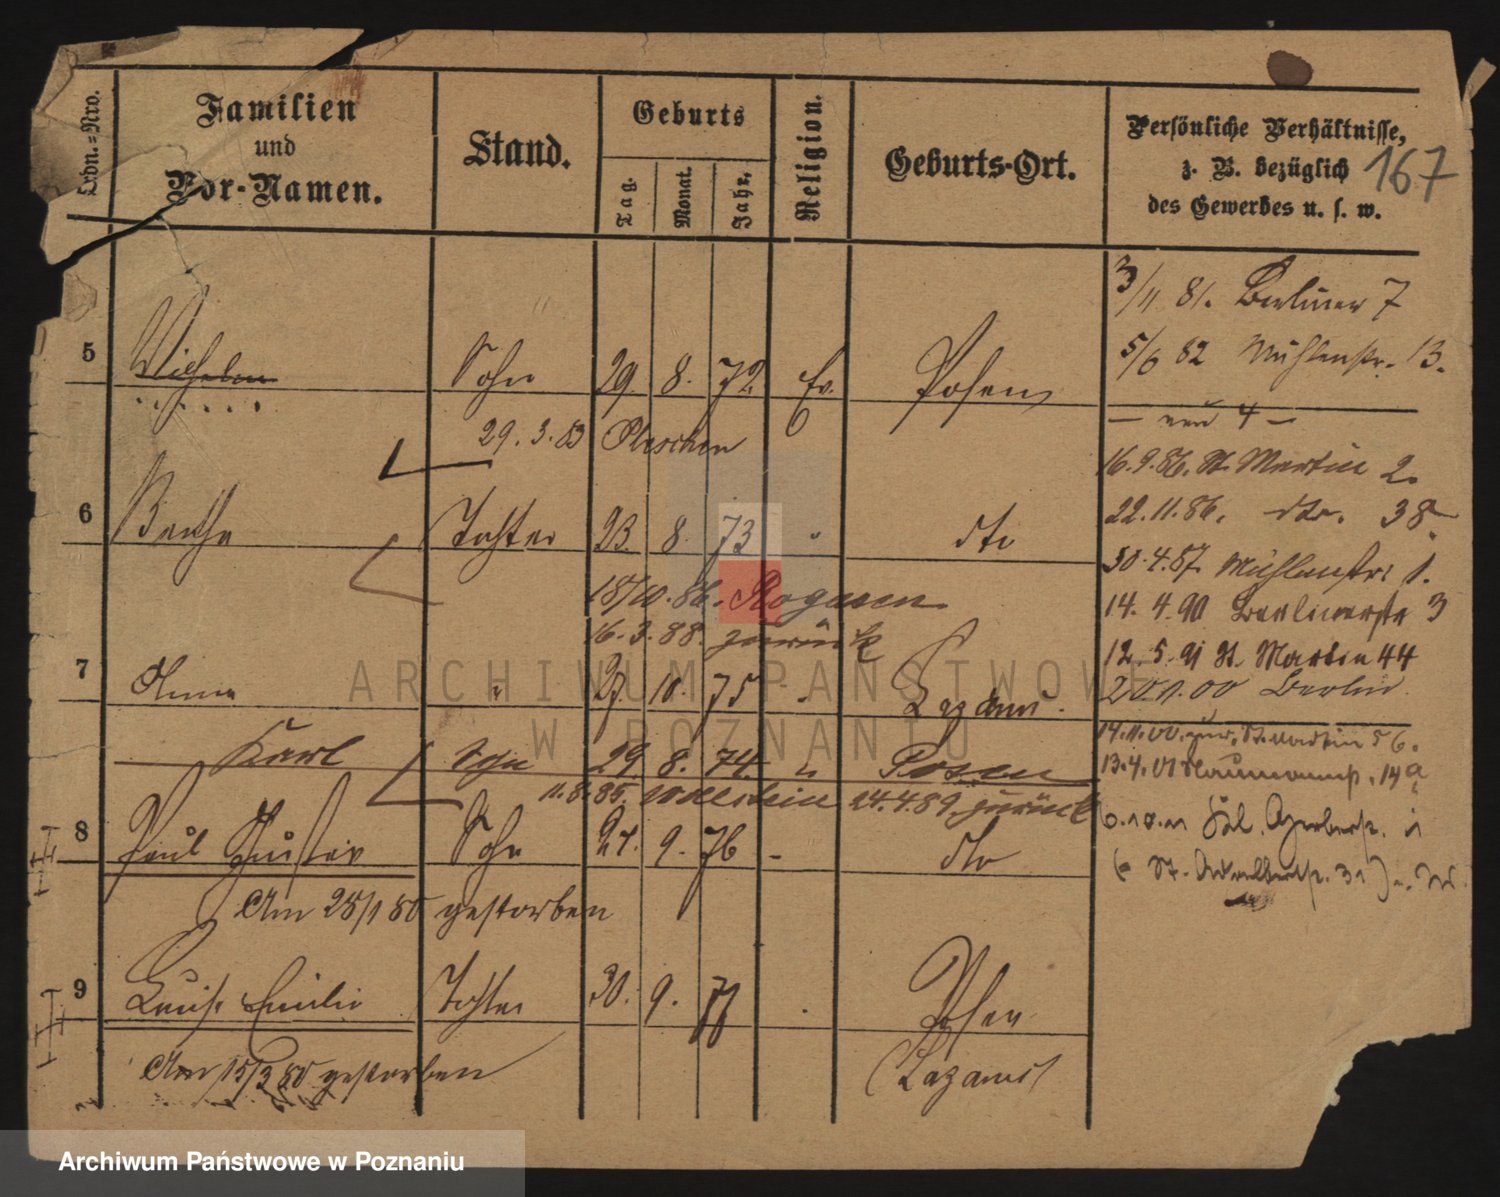 Ordn.=Nro.
Familien
und
Vor-Namen.
Stand.
Geburts
Tag.
Monat.
Jahr.
Religion.
Geburts-Ort.
Persönliche Verhältnisse,
z. B. bezüglich
des Gewerbes u. s. w.
167
3/11 81. Berliner 7
5/6 82 Mühlenstr. 13.
5 Wilhelm Sohn 29. 8. 72 Ev. Posen
— und 4 —
29. 3. 83 Pleschen
16.9.86. St. Martin 2.
22.11.86. dto. 38
6 Bertha Tochter 23. 8. 73 " dto
30.4.87 Mühlenstr. 1.
18/10.86. Rogasen
14. 4. 90 Berlinerstr 3
16. 3. 88. zurück
12. 5. 91 St. Martin 44
7 Anna " 27. 10. 75 - Lazarus.
20.1.00 Berlin.
14.11.00. zur. St. Martin 56.
Karl Sohn 29. 8. 74. Posen
13.4.01 Naumannst. 14a
11.8.85. Wollstein 24.4.89. zurück
8 Paul Gustav Sohn 27. 9. 76 - dto
6.10.11
St. Adalbertst. 31
Am 25/1 80 gestorben
9 Louise Emilie Tochter 30. 9. 77 . Posen
(Lazarus)
Am 15/3 80 gestorben
ARCHIWUM PAŃSTWOWE
W POZNANIU
Archiwum Państwowe w Poznaniu